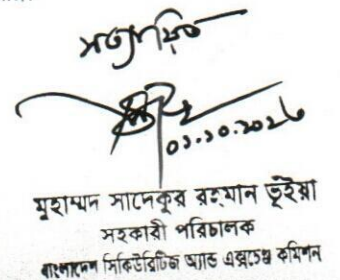 সত্যায়িত
০১.১০.২০২৬
মুহাম্মদ সাদেকুর রহমান ভূঁইয়া
সহকারী পরিচালক
বাংলাদেশ সিকিউরিটিজ অ্যান্ড এক্সচেঞ্জ কমিশন